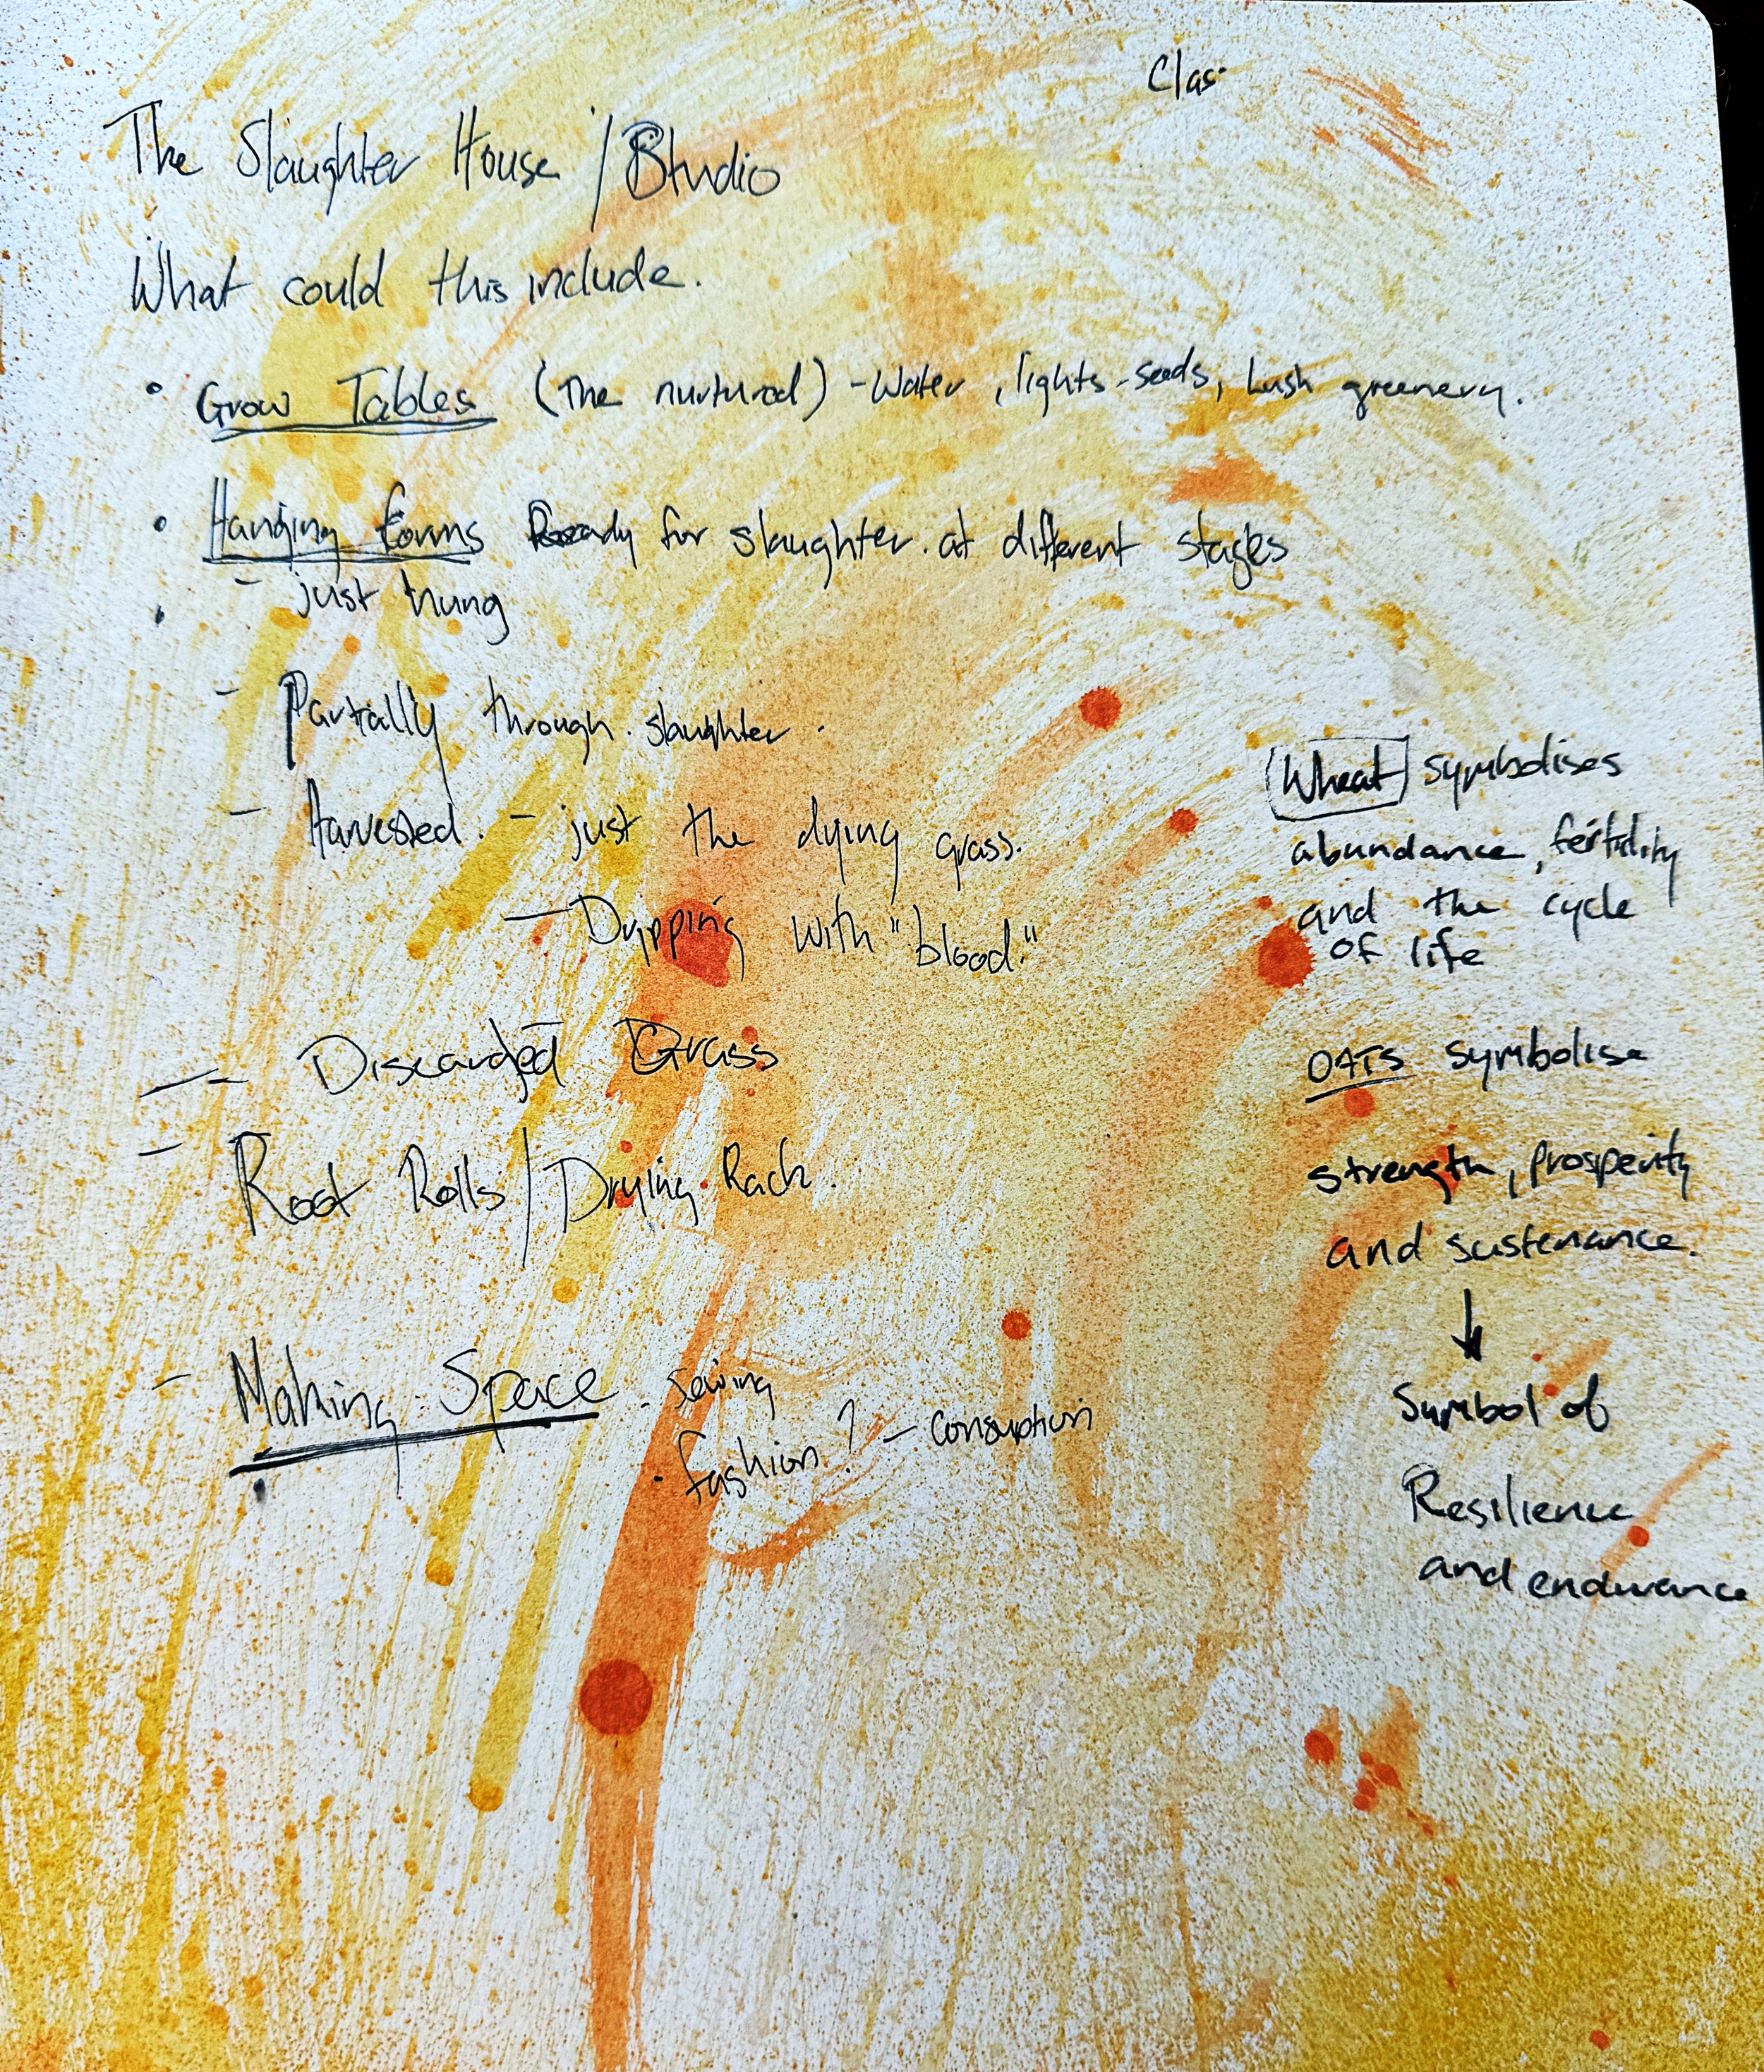 Clas
The Slaughter House / Studio
What could this include.
• Grow Tables (The nurtured) - Water, lights - seeds, Lush greenery.
• Hanging forms Ready for slaughter. at different stages
- just hung
- Partially through slaughter.
- Harvested. - just the dying grass.
- Dripping with "blood."
- Discarded Grass
- Root Rolls / Drying Rack.
- Making Space - sewing
• fashion? - Consuption
Wheat symbolises
abundance, fertility
and the cycle
of life
OATS symbolise
strength, prosperity
and sustenance.
↓
Symbol of
Resilience
and endurance